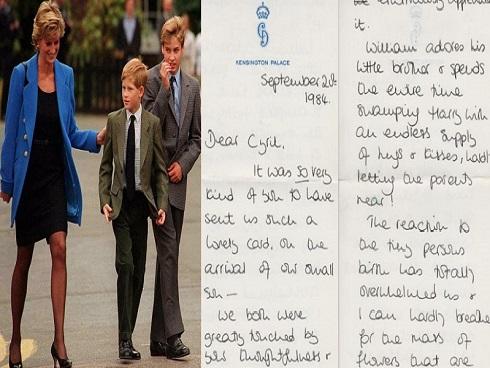 KENSINGTON PALACE
September 20th
1984.
Dear Cyril,
It was so very
kind of you to have
sent us such a
lovely card on the
arrival of our small
son –
We both were
greatly touched by
your thoughtfulness &
enormously appreciated
it.
William adores his
little brother & spends
the entire time
swamping Harry with
an endless supply
of hugs & kisses, hardly
letting the parents
near!
The reaction to
one tiny persons
birth has totally
overwhelmed us &
I can hardly breathe
for the mass of
flowers that are